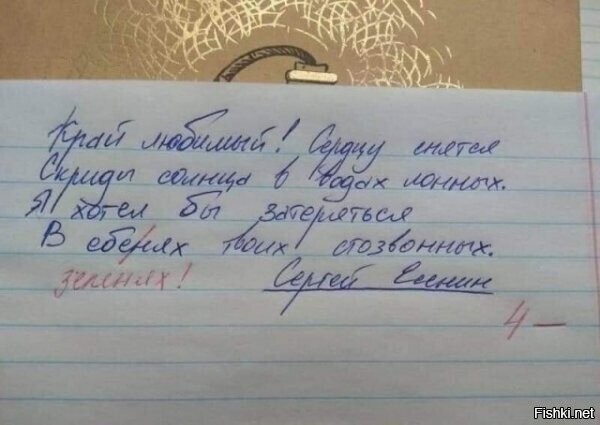 Край любимый! Сердцу снятся
Скирды солнца в водах лонных.
Я хотел бы затеряться
В ебенях твоих стозвонных.
зеленях!
Сергей Есенин
4 —
Fishki.net